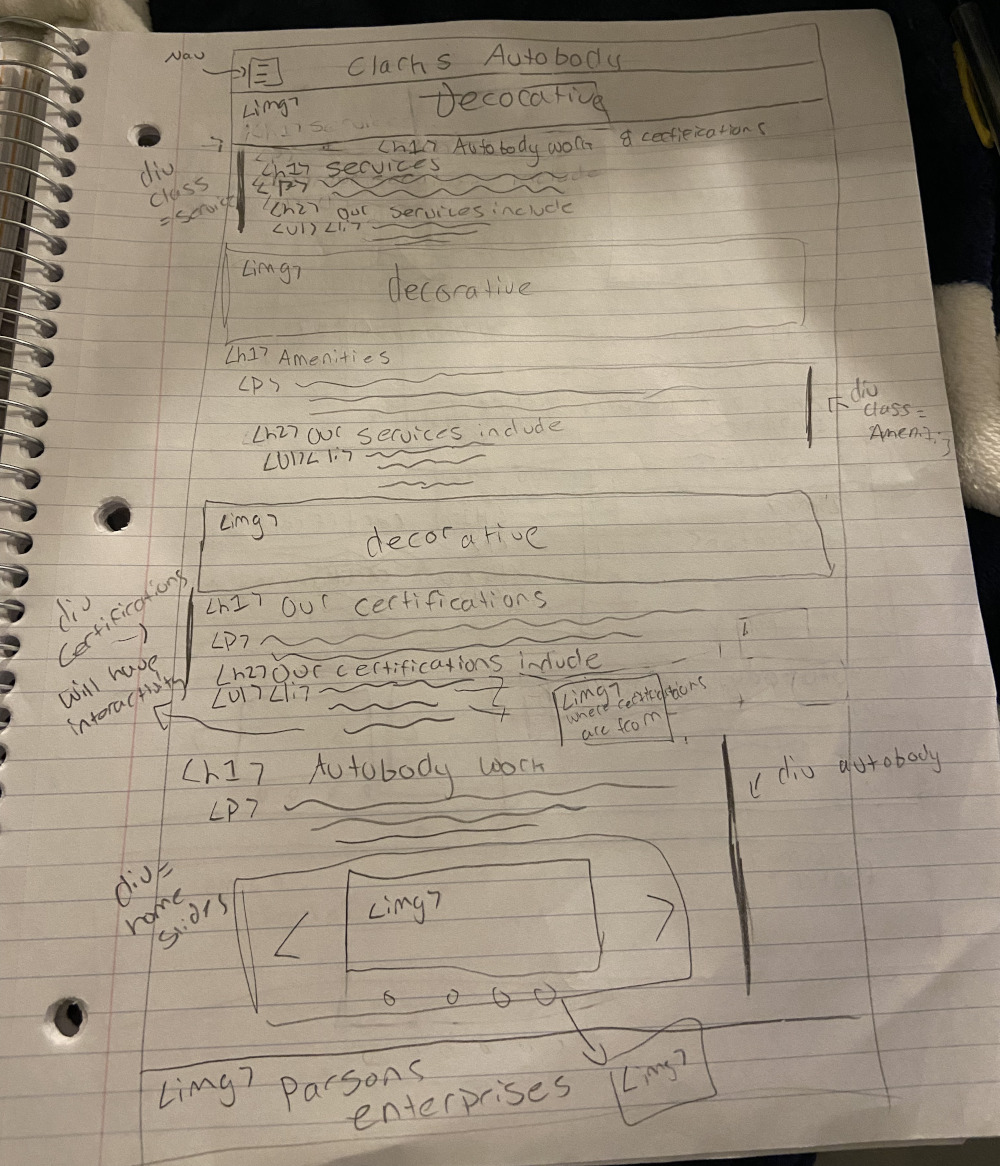 Nav
Clachs Autobody
<img>
Decorative
<h1> Autobody work & certifications
div
class
= servic
<h1> services
<p>
<h2> our services include
<ul> <li>
<img>
decorative
<h1> Amenities
<p>
div
class =
<h2> our services include
<ul> <li>
<img>
decorative
div
certifications
will have
interactivity
<h1> our certifications
<p>
<h2> our certifications include
<ul> <li>
<img>
where certifications
are from
<h1> Autobody work
<p>
div autobody
div=
home
sliders
<
<img>
>
<img> Parsons
enterprises
<img>